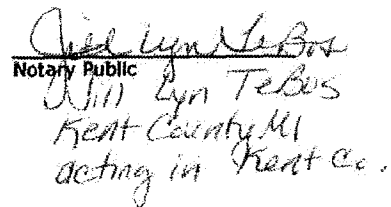 Jill Lyn TeBos
Notary Public
Jill Lyn TeBos
Kent County MI
acting in Kent Co.